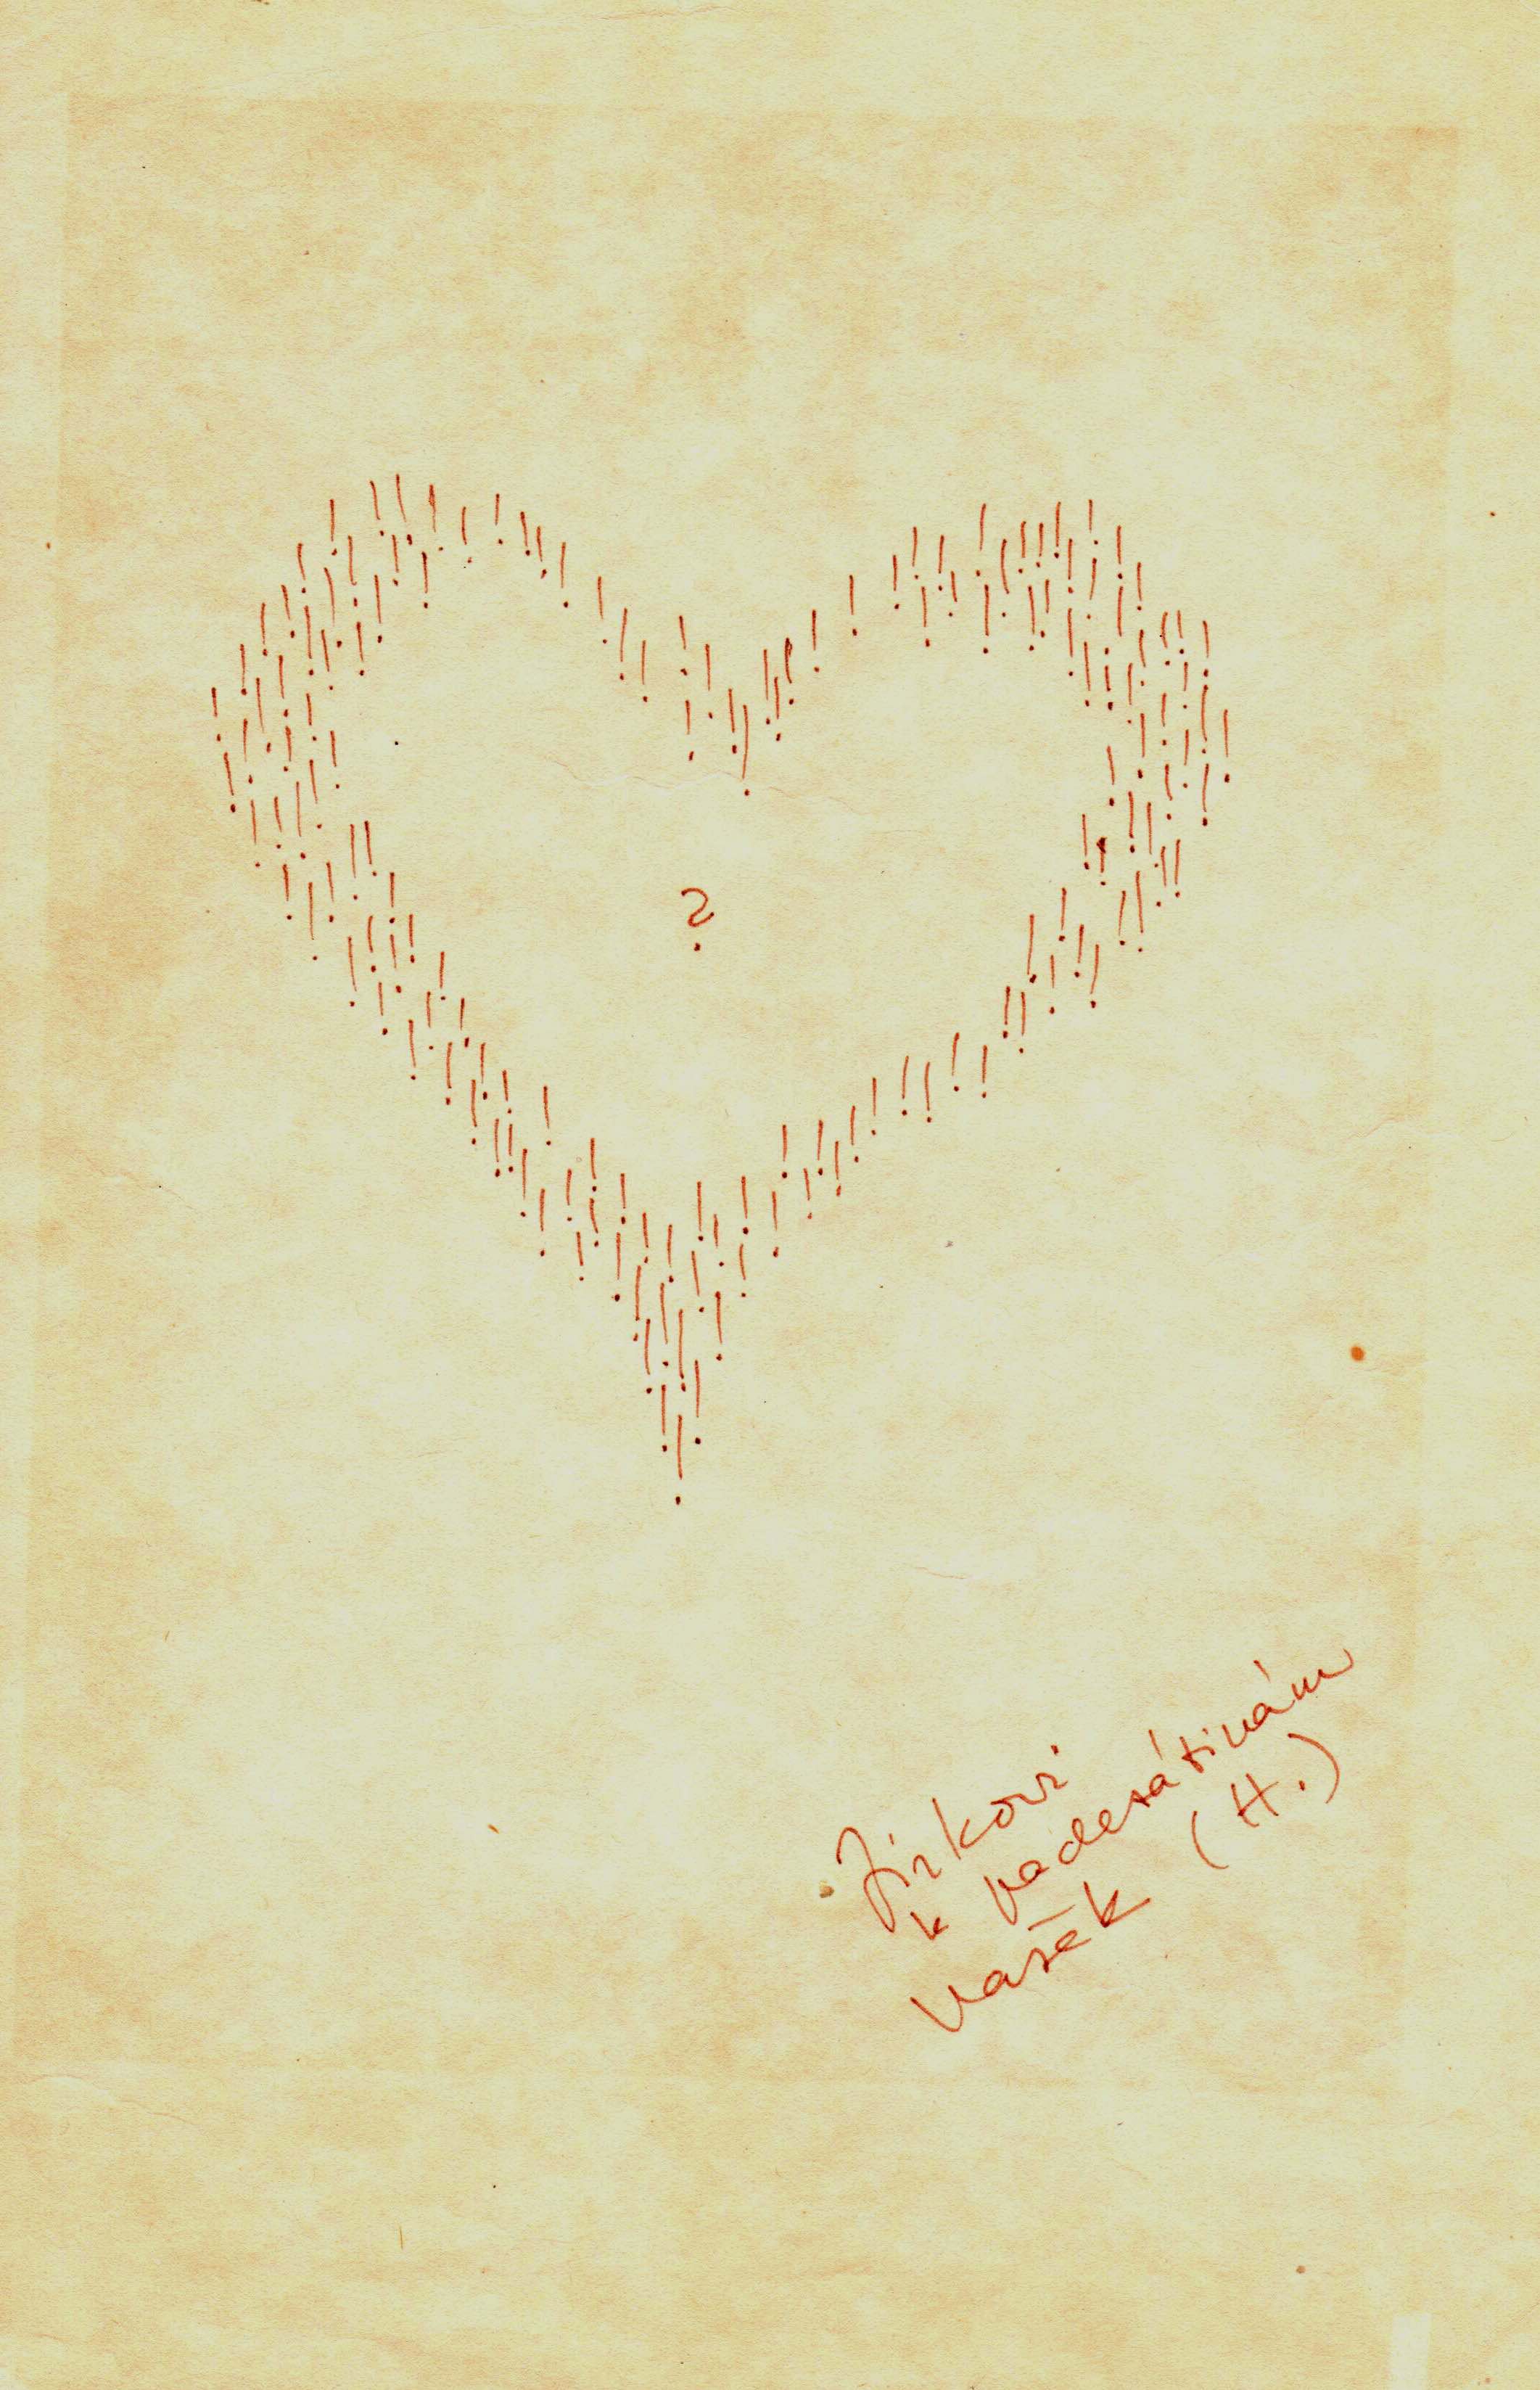 ?
Jirkovi
k padesátinám
Vašek (H.)